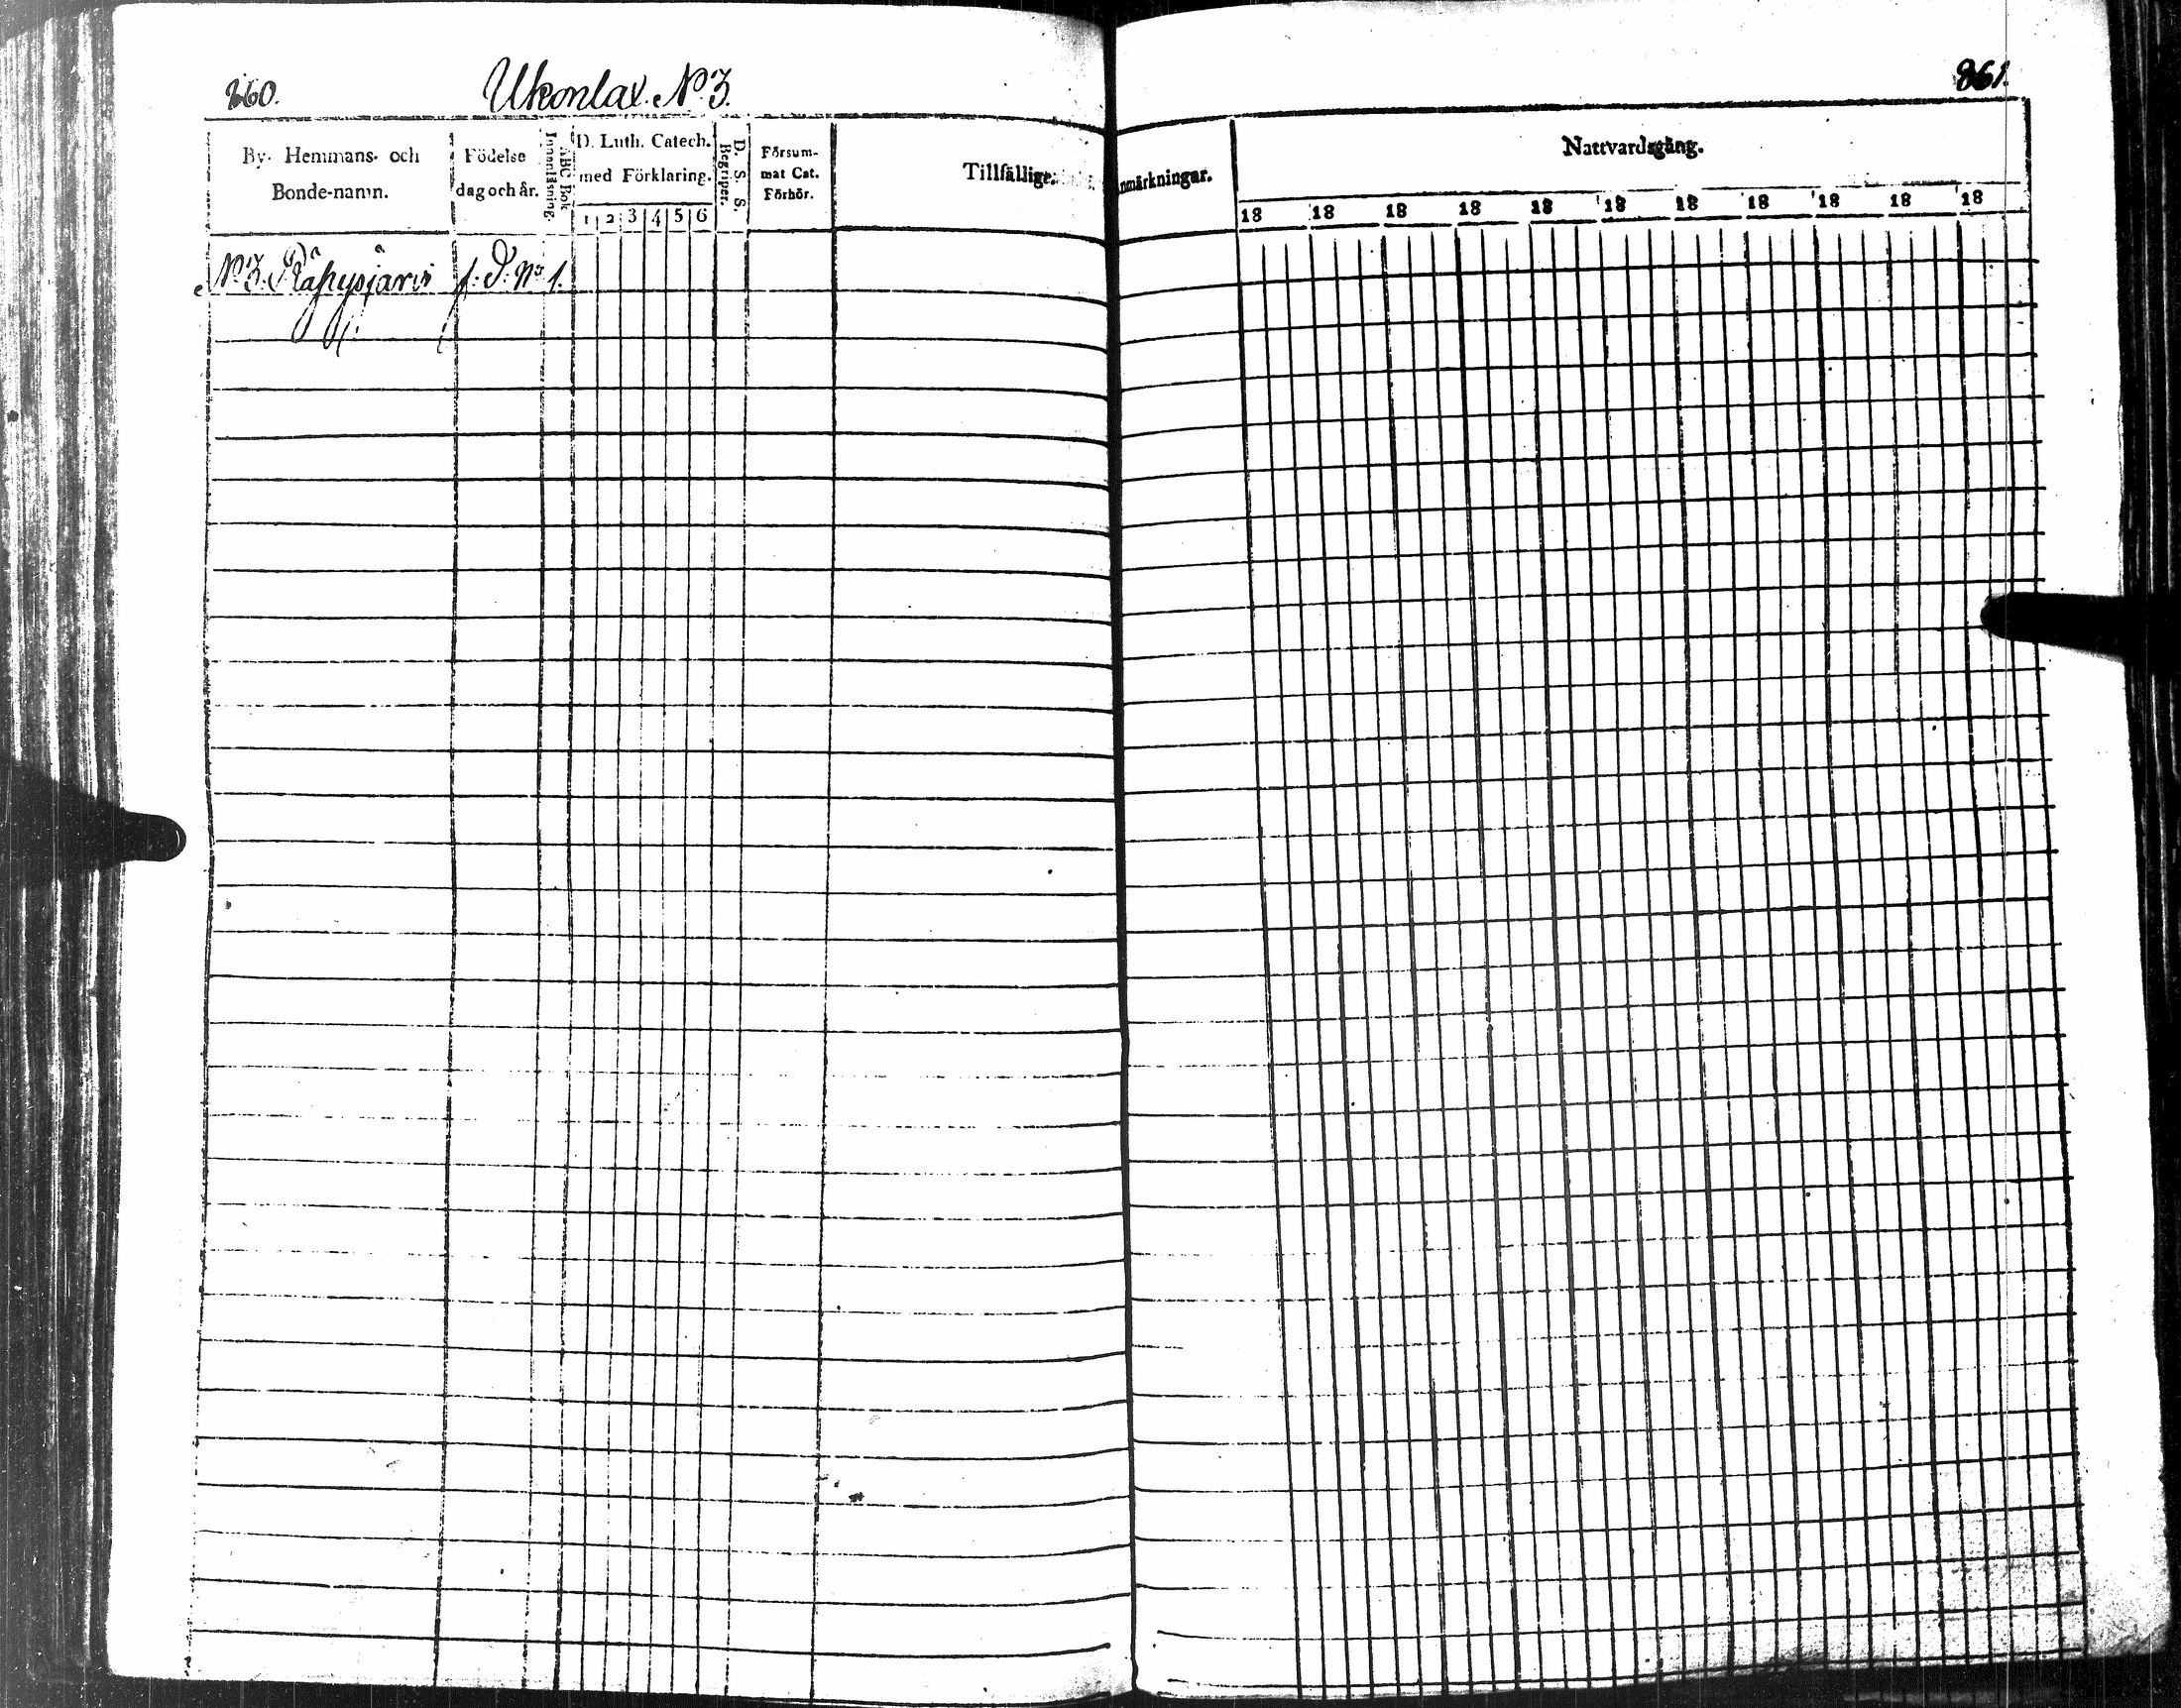 260.
Ukonlax. N:o 3.
By- Hemmans- och Bonde-namn.
Födelse dag och år.
ABC Bok Innanläsning.
D. Luth. Catech. med Förklaring.
1 2 3 4 5 6
D. S. S. Begriper.
Försum- mat Cat. Förhör.
Tillfällige
N:o 3.
f. d. N:o 1.
261.
nmärkningar.
Nattvardsgång.
18 18 18 18 18 18 18 18 18 18 18